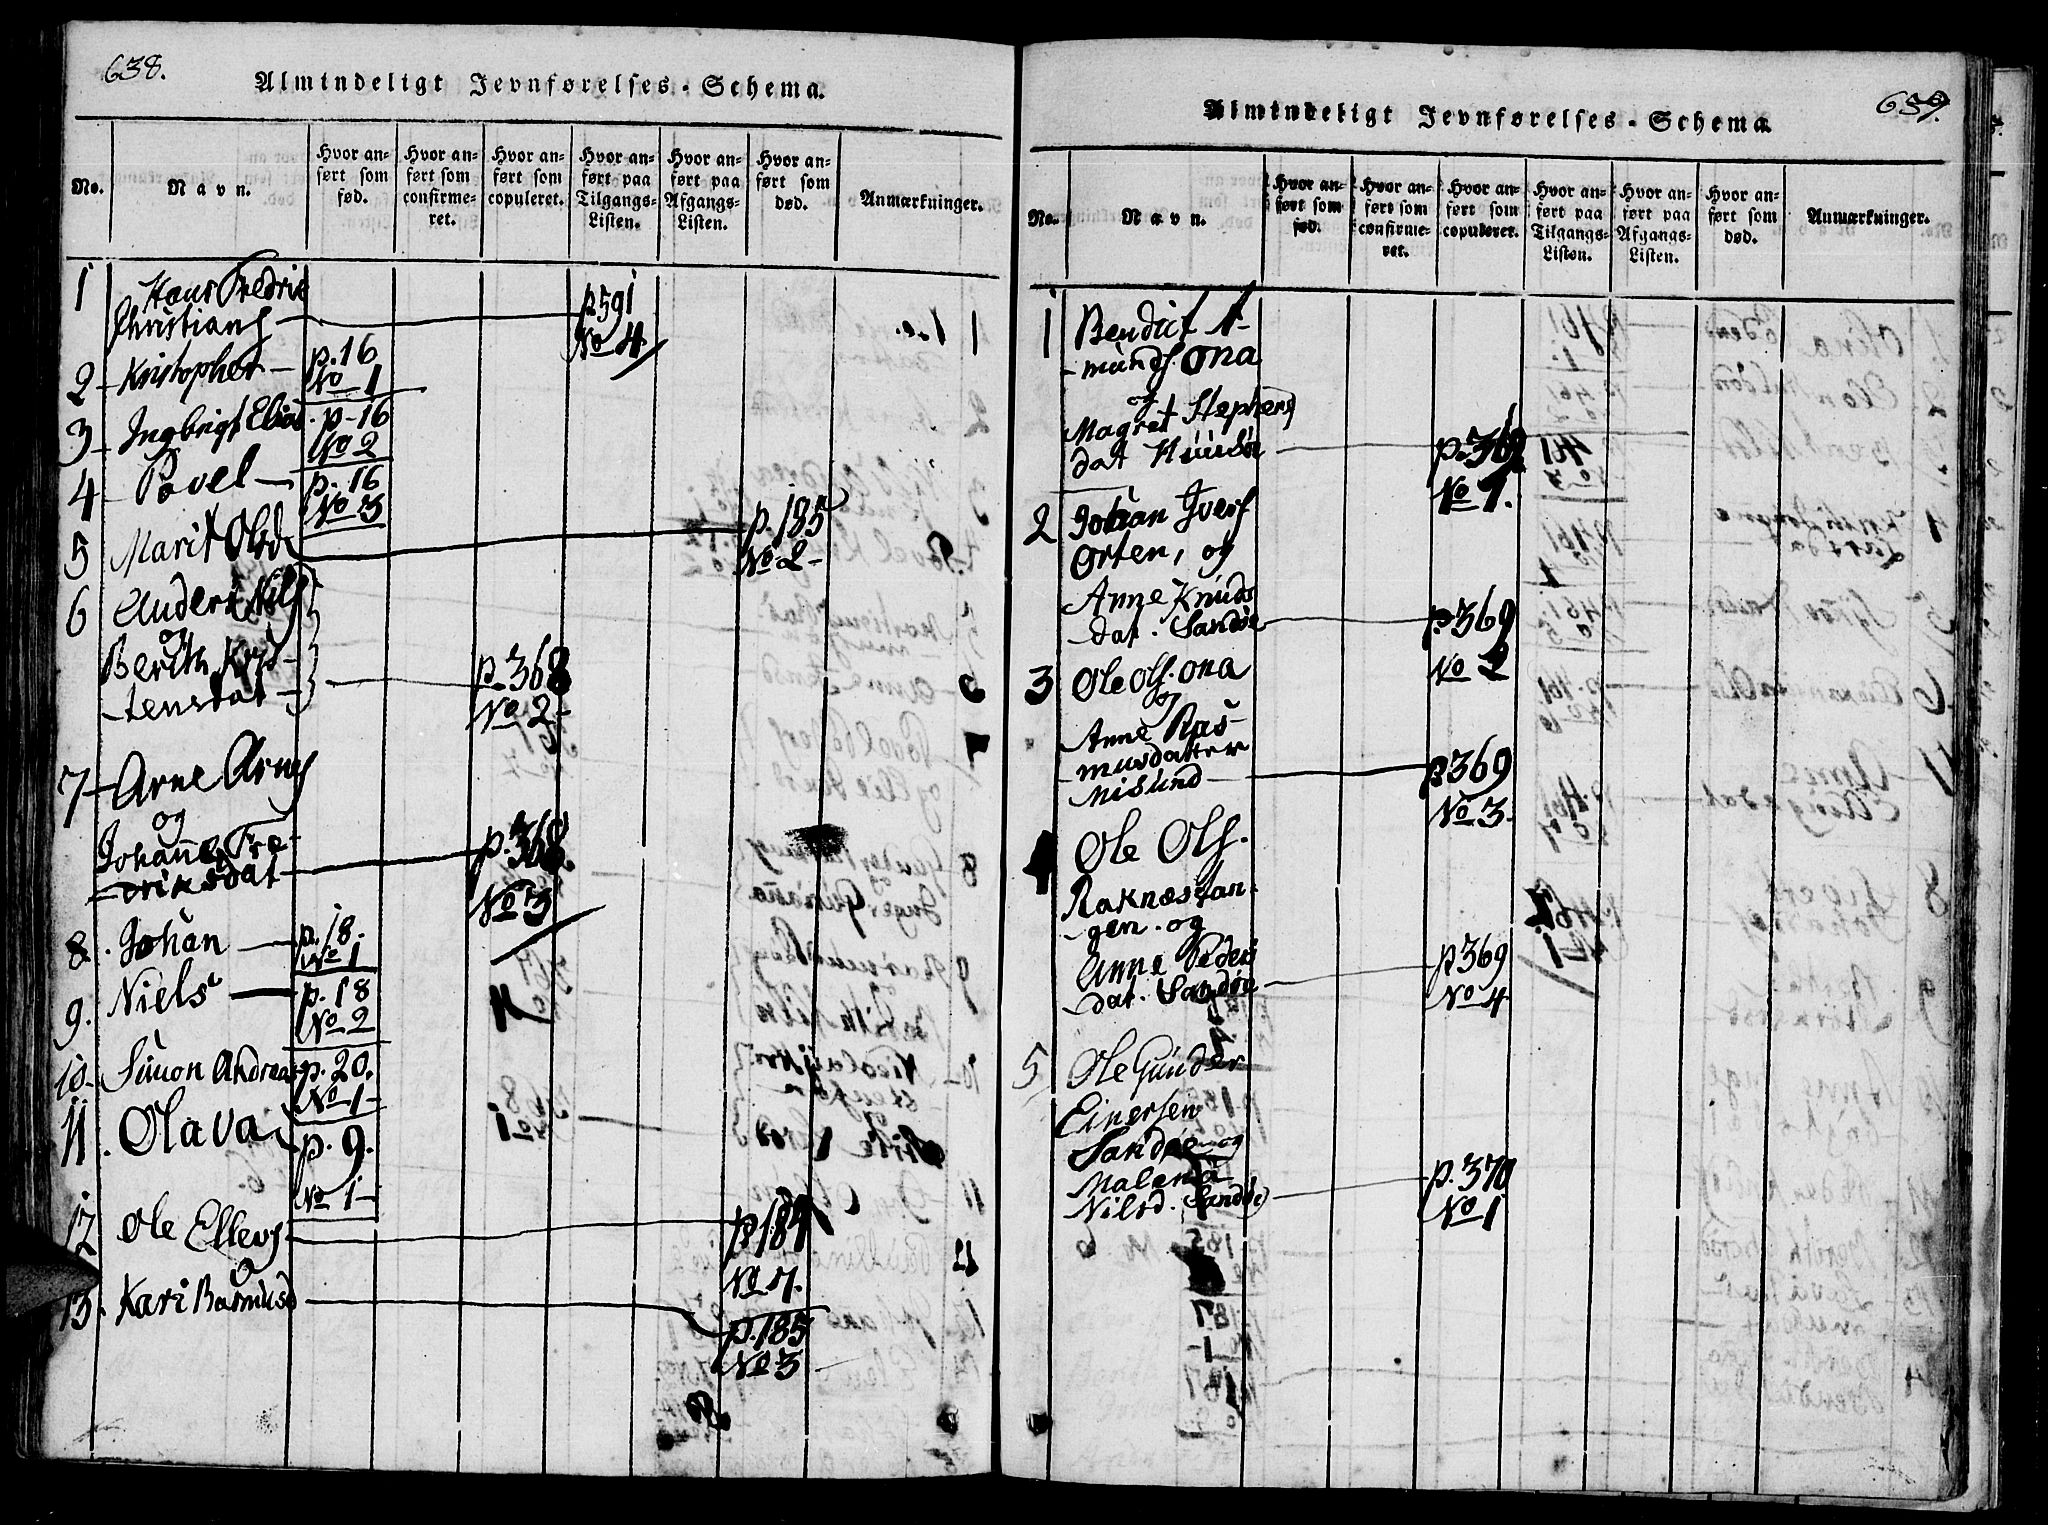 638.
Almindeligt Jevnførelses-Schema.
No.
Navn.
Hvor anført som fød.
Hvor anført som confirmeret.
Hvor anført som copuleret.
Hvor anført paa Tilgangs-Listen.
Hvor anført paa Afgangs-Listen.
Hvor anført som død.
Anmærkninger.
1 Hans Fredrik
Christians p 591
No 4
2 Kristopher p. 16
No 1
3 Ingbrigt Elias p-16
No 2
4 Povel p. 16
No 3
5 Marit Olsd p. 185
No 2
6 Anders Nils
og
Berith Kris-
tensdat p. 368
No 2
7 Arne Arns
og
Johanne Fre-
driksdat p. 368.
No 3
8. Johan p. 18.
No 1
9. Niels p. 18
No 2
10 Simon Andreas p. 20.
No 1
11. Olava p. 9.
No 1
12 Ole Ellevs p 184
No 7.
13. Kari Rasmusd p. 185
No 3
639.
Almindeligt Jevnførelses-Schema
No.
Navn.
Hvor anført som fød.
Hvor anført som confirmeret.
Hvor anført som copuleret.
Hvor anført paa Tilgangs-Listen.
Hvor anført paa Afgangs-Listen.
Hvor anført som død.
Anmærkninger.
1 Bendict A-
munds. Ona
og
Magret Stephens
dat Huusøe p. 369
No 1.
2 Johan Ivers
Orten, og
Anne Knuds
dat. Sandøe p. 369
No 2
3 Ole Ols. Ona
og
Anne Ras-
musdatter
Misund p 369
No 3.
4 Ole Ols.
Raknæstan-
gen. og
Anne Peders
dat. Sandøe p 369
No 4
5 Ole Gunder
Einersen
Sandøe og
Malena
Nilsd. Sandøe p. 370
No 1